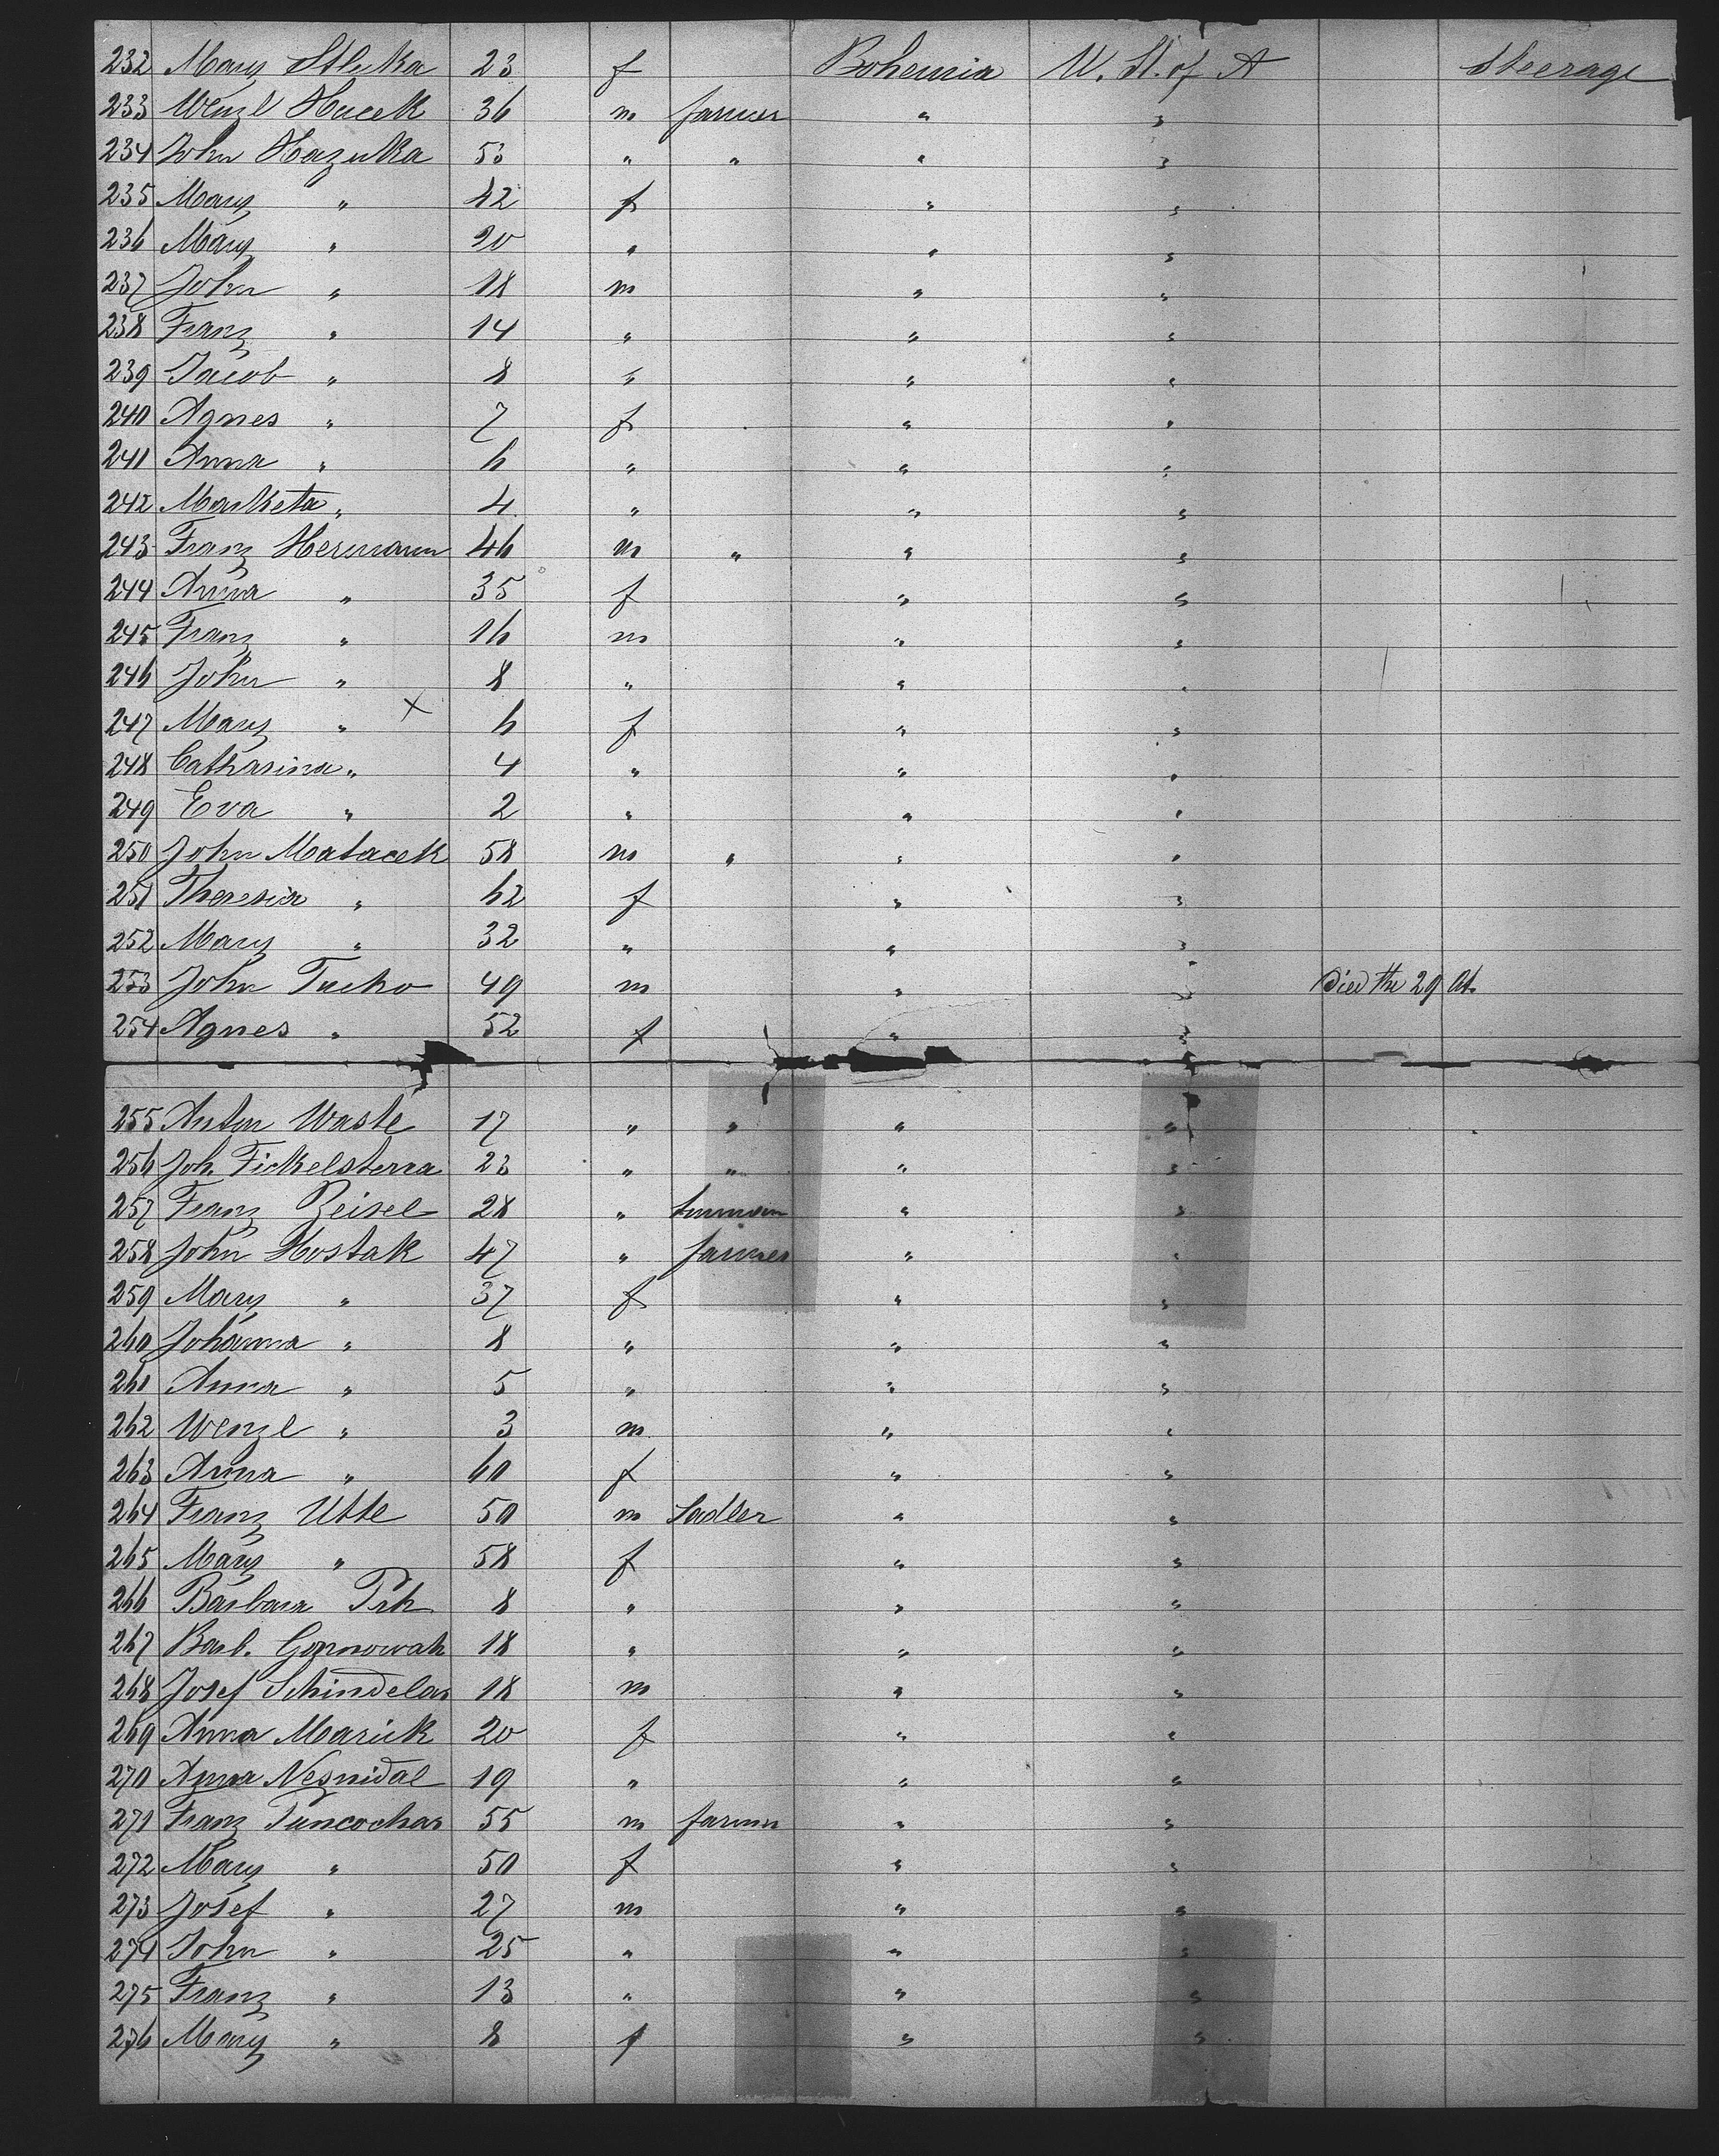 232 Mary Stluka 23 f Bohemia U. St. of A Steerage
233 Wenzl Hucek 36 m farmer " "
234 John Hazuka 53 " " " "
235 Mary " 42 f " "
236 Mary " 20 " " "
237 John " 18 m " "
238 Franz " 14 " " "
239 Jacob " 8 " " "
240 Agnes " 7 f " "
241 Anna " 6 " " "
242 Marketa " 4 " " "
243 Franz Hermann 46 m " " "
244 Anna " 35 f " "
245 Franz " 16 m " "
246 John " 8 " " "
247 Mary " X 6 f " "
248 Catharina " 4 " " "
249 Eva " 2 " " "
250 John Matacek 58 m " " "
251 Theresia " 62 f " "
252 Mary " 32 " " "
253 John Tucho 49 m " " Died the 29
254 Agnes " 52 f " "
255 Anton Waste 17 " " " "
256 Joh. Fickelsterra 23 " " " "
257 Franz Zeisel 28 " " "
258 John Hostak 47 " farmer " "
259 Mary " 37 f " "
260 Johanna " 8 " " "
261 Anna " 5 " " "
262 Wenzl " 3 m " "
263 Anna " 60 f " "
264 Franz Utte 50 m Sadler " "
265 Mary " 58 f " "
266 Barbara 8 " " "
267 Barb. Gornowak 18 " " "
268 Josef Schindelar 18 m " "
269 Anna Marick 20 f " "
270 Anna Nesnidal 19 " " "
271 Franz Tuncochar 55 m farmer " "
272 Mary " 50 f " "
273 Josef " 27 m " "
274 John " 25 " " "
275 Franz " 13 " " "
276 Mary " 8 f " "